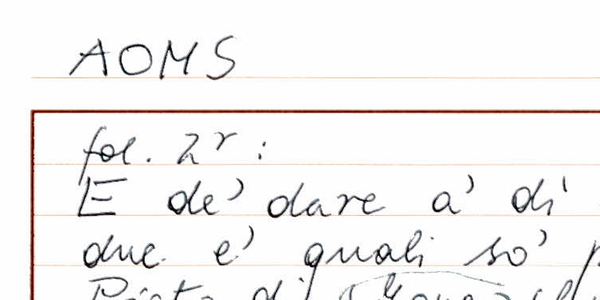 AOMS
fol. 2r:
E de' dare a' di'
due e' quali so'
di